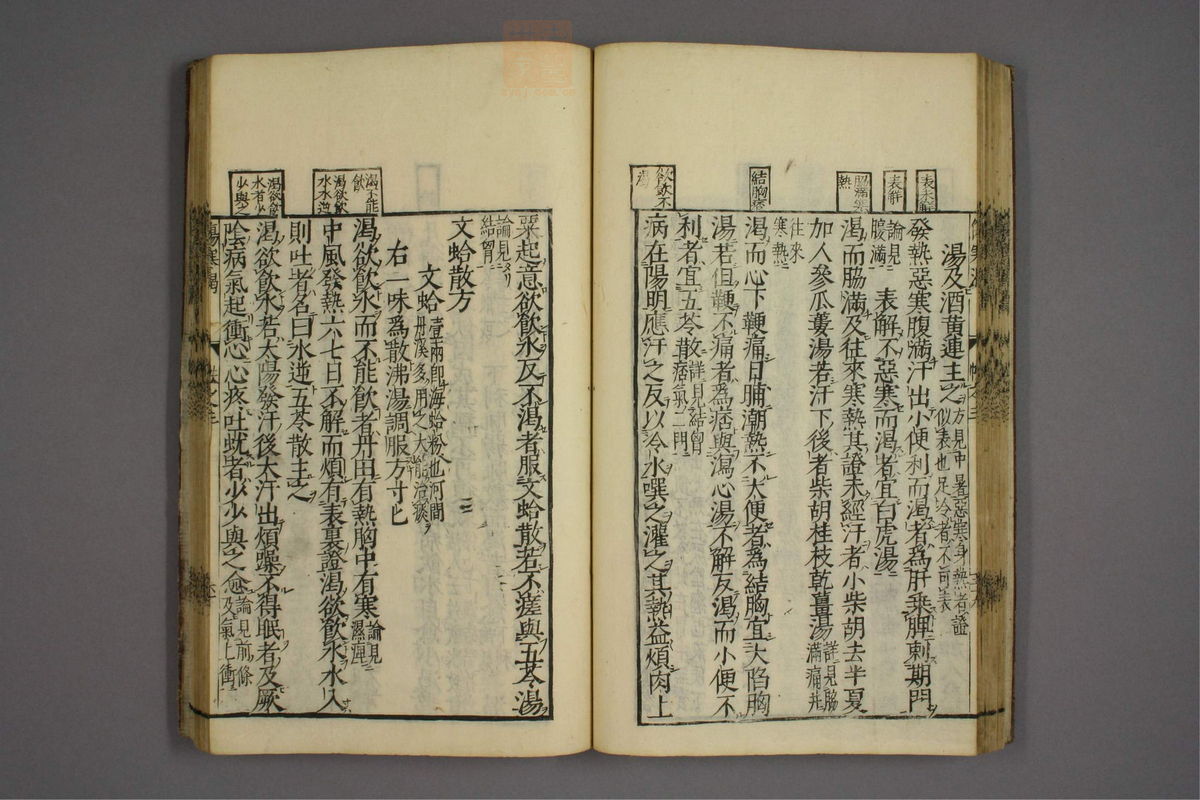 表未解
表解
脇滿寒熱
結胸痞
欲飲不渴
湯及酒黃連主之方見中暑惡寒身熱者證似表也足冷者不可表
發熱惡寒腹滿汗出小便利而渴者為肝乘脾刺期門
論見腹滿 表解不惡寒而渴者宜白虎湯
渴而脇滿及往來寒熱其證未經汗者小柴胡去半夏
加人參瓜蔞湯若汗下後者柴胡桂枝乾薑湯詳見脇滿痛并
往來寒熱
渴而心下鞕痛日晡潮熱不大便者為結胸宜大陷胸
湯若但鞕不痛者為痞與瀉心湯不解反渴而小便不
利者宜五苓散詳見結胸痞氣二門
病在陽明應汗之反以冷水噀之灌之其熱益煩肉上
渴不能飲
渴欲飲水水逆
渴欲飲水者少少與之
粟起意欲飲水反不渴者服文蛤散若不瘥與五苓湯
論見結胷
文蛤散方
文蛤壹兩即海蛤粉也河間丹溪多用之大能治痰
右一味為散沸湯調服方寸匕
渴欲飲水而不能飲者丹田有熱胸中有寒論見濕痺
中風發熱六七日不解而煩有表裏證渴欲飲水水入
則吐者名曰水逆五苓散主之
渴欲飲水若太陽發汗後大汗出煩躁不得眠者及厥
陰病氣起衝心心疼吐蚘者少少與之愈論見前條及氣上衝
傷寒渴